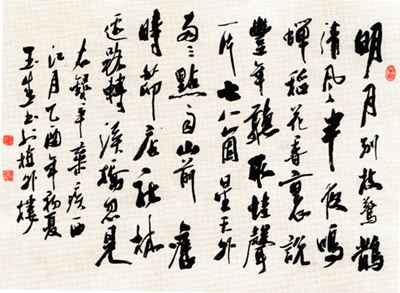 明月别枝驚鵲
清風半夜鳴
蟬稻花香裏説
豐年聽取蛙聲
一片七八箇星天外
兩三點雨山前舊
時茆店社林
邊路轉溪橋忽見
右錄辛棄疾西
江月乙酉年初夏
玉生書於梅外樓